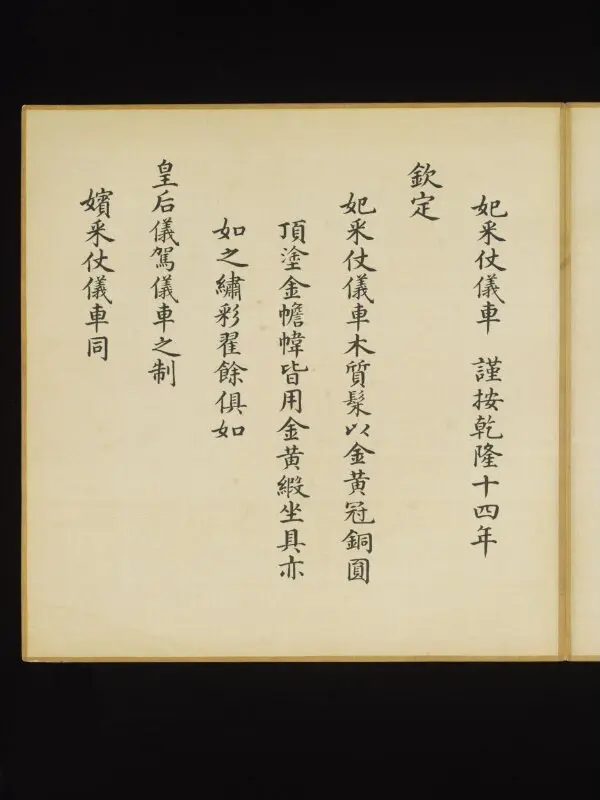 妃采仗儀車 謹按乾隆十四年
欽定
妃采仗儀車木質髹以金黃冠銅圓
頂塗金幨幃皆用金黃緞坐具亦
如之繡彩翟餘俱如
皇后儀駕儀車之制
嬪采仗儀車同